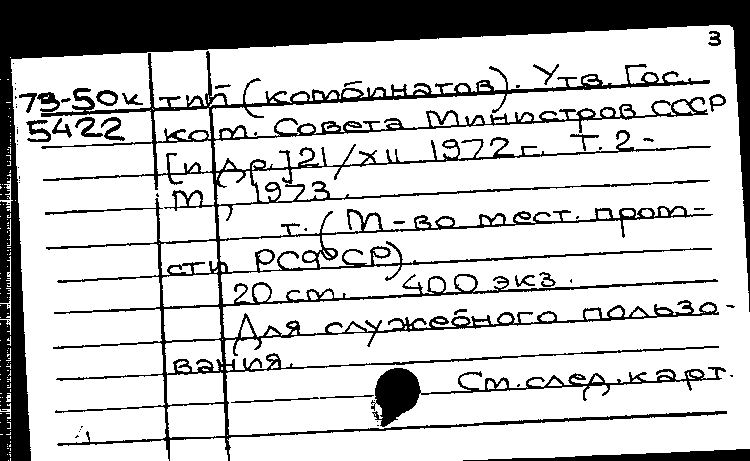 3
73-50к тий (комбинатов). Утв. Гос.
5422 ком. Совета Министров СССР
[и др.] 21/XII 1972 г. Т. 2-
М., 1973.
т. (М-во мест. пром-
сти РСФСР).
20 см. 400 экз.
Для служебного пользо-
вания.
См. след. карт.